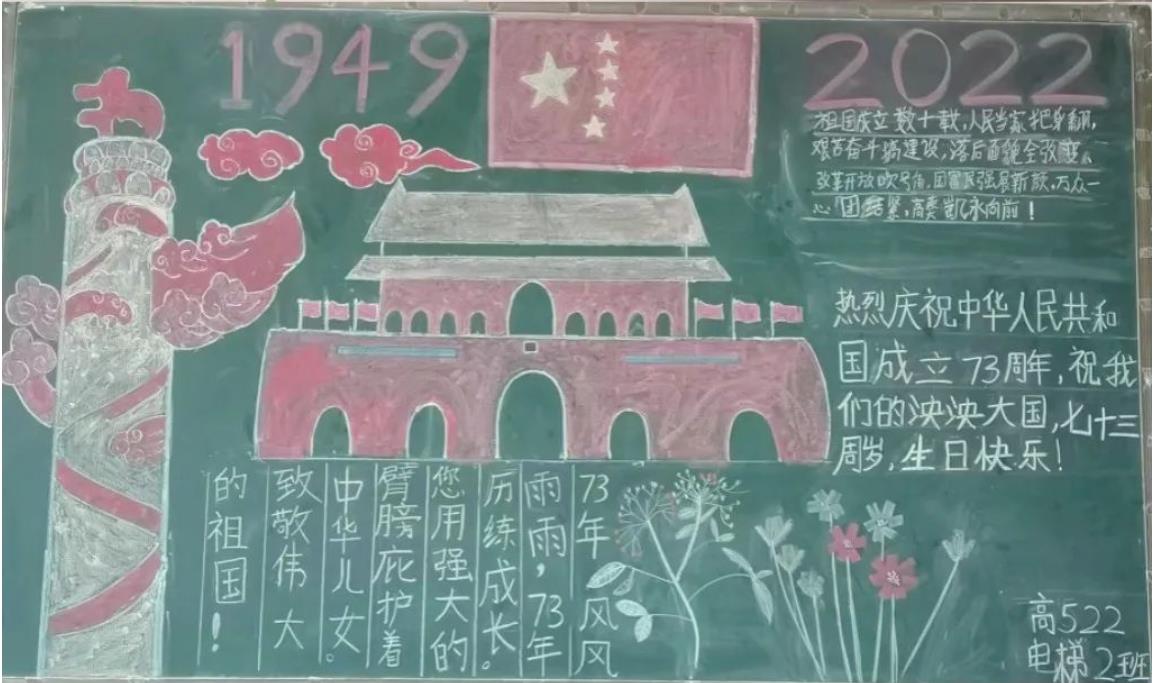 1949
2022
祖国成立数十载，人民当家把身翻，
艰苦奋斗搞建设，落后面貌全改变。
改革开放吹号角，国富民强展新颜，万众一
心团结紧，高奏凯永向前！
热烈庆祝中华人民共和
国成立73周年，祝我
们的泱泱大国，七十三
周岁，生日快乐！
73年风风
雨雨，73年
历练成长。
您用强大的
臂膀庇护着
中华儿女。
致敬伟大
的祖国！
高522
电梯2班